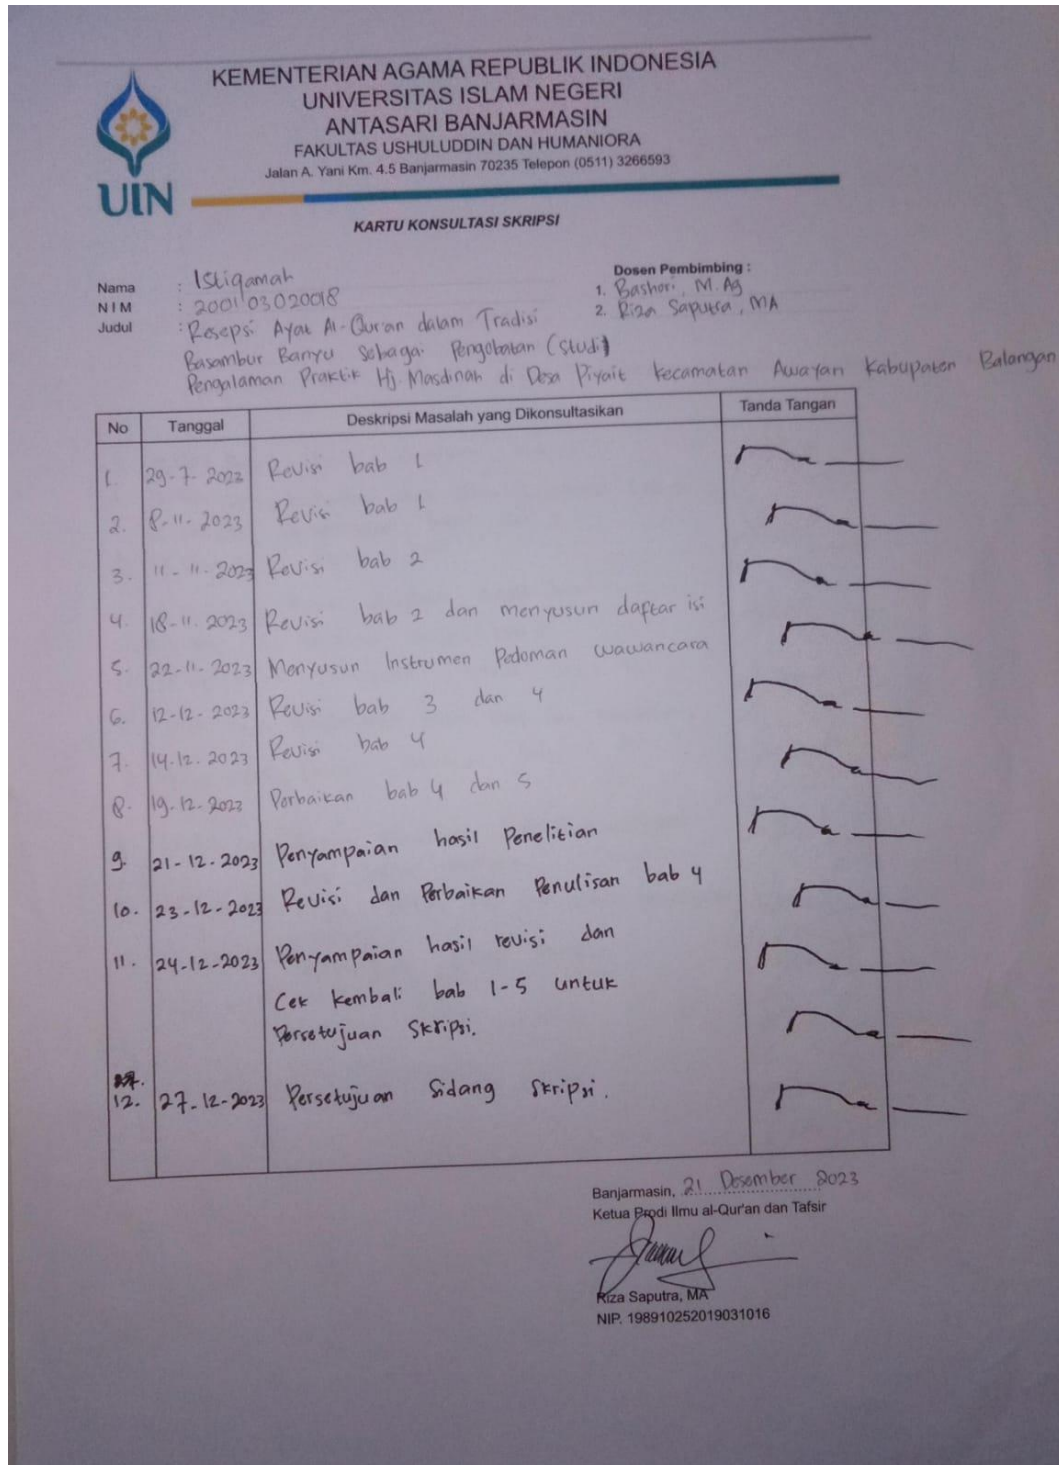 KEMENTERIAN AGAMA REPUBLIK INDONESIA
UNIVERSITAS ISLAM NEGERI
ANTASARI BANJARMASIN
FAKULTAS USHULUDDIN DAN HUMANIORA
Jalan A. Yani Km. 4.5 Banjarmasin 70235 Telepon (0511) 3266593
UIN
KARTU KONSULTASI SKRIPSI
Nama : Istiqamah
NIM : 200103020018
Judul : Resepsi Ayat Al-Qur'an dalam Tradisi
Basambur Banyu Sebagai Pengobatan (Studi
Pengalaman Praktik Hj. Masdinah di Desa Piyait Kecamatan Awayan Kabupaten Balangan
Dosen Pembimbing :
1. Bashori, M.Ag
2. Riza Saputra, MA
No Tanggal Deskripsi Masalah yang Dikonsultasikan Tanda Tangan
1. 29-7-2023 Revisi bab 1
2. 8-11-2023 Revisi bab 1
3. 11-11-2023 Revisi bab 2
4. 18-11-2023 Revisi bab 2 dan menyusun daftar isi
5. 22-11-2023 Menyusun Instrumen Pedoman wawancara
6. 12-12-2023 Revisi bab 3 dan 4
7. 14-12-2023 Revisi bab 4
8. 19-12-2023 Perbaikan bab 4 dan 5
9. 21-12-2023 Penyampaian hasil Penelitian
10. 23-12-2023 Revisi dan Perbaikan Penulisan bab 4
11. 24-12-2023 Penyampaian hasil revisi dan
Cek kembali bab 1-5 untuk
Persetujuan Skripsi.
12. 27-12-2023 Persetujuan Sidang Skripsi.
Banjarmasin, 21 Desember 2023
Ketua Prodi Ilmu al-Qur'an dan Tafsir
Riza Saputra, MA
NIP. 198910252019031016